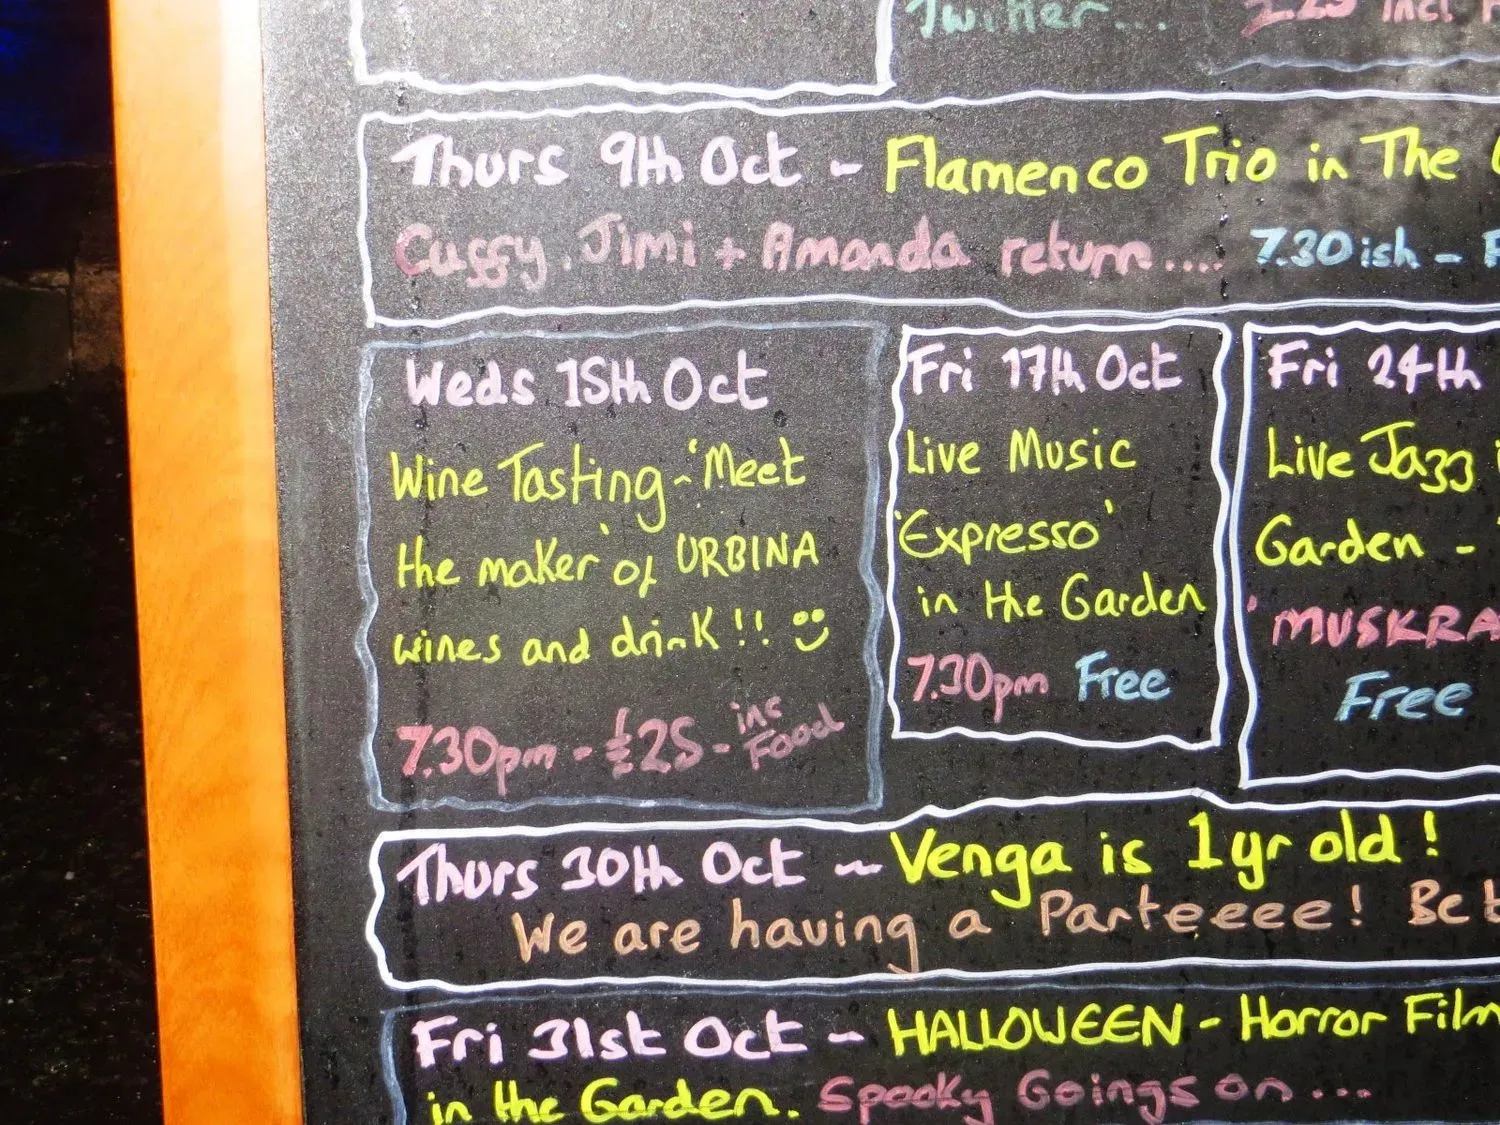 Twitter...
£25 incl
Thurs 9th Oct ~ Flamenco Trio in The
Cuffy, Jimi + Amanda return..... 7.30ish -
Weds 15th Oct
Wine Tasting ~ 'Meet
the maker' of URBINA
wines and drink!! :)
7.30pm - £25 - inc
Food
Fri 17th Oct
Live Music
'Expresso'
in the Garden
7.30pm Free
Fri 24th
Live Jazz
Garden -
'MUSKRA
Free
Thurs 30th Oct ~ Venga is 1yr old!
We are having a Parteeeee!
Fri 31st Oct ~ HALLOWEEN - Horror Film
in the Garden. Spooky Goings on...